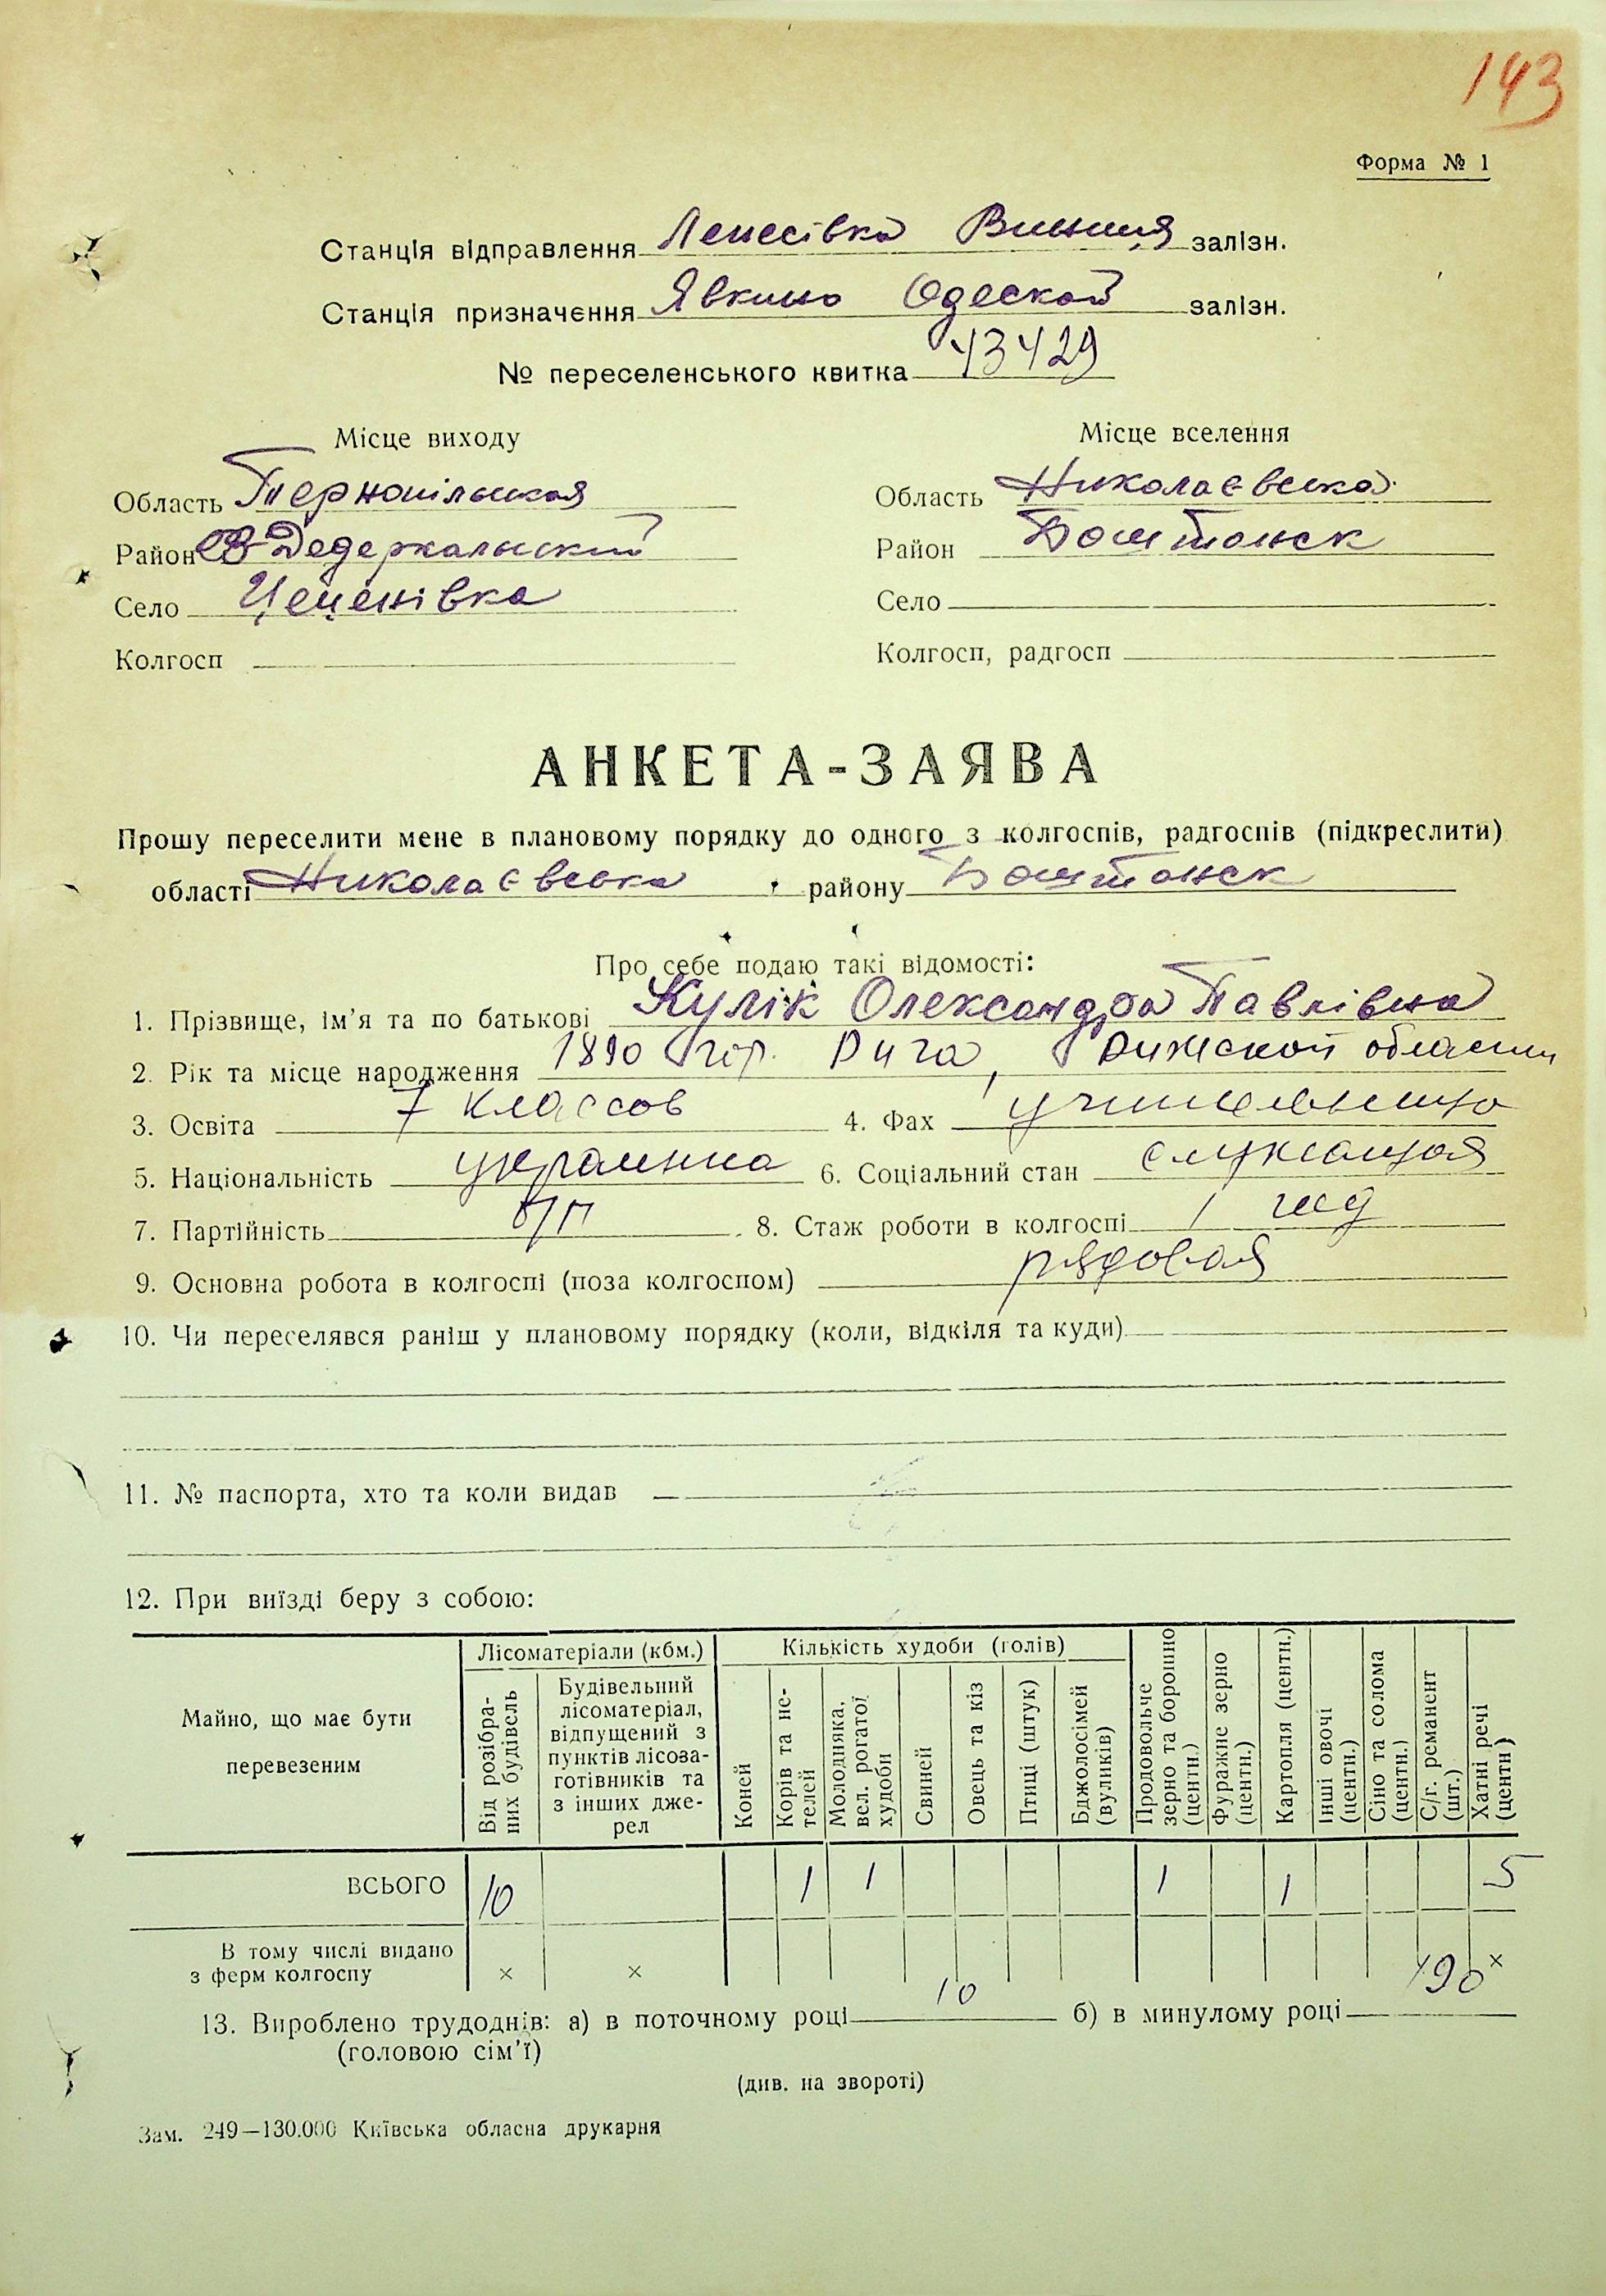 143
Форма № 1
Станція відправлення Ленесівка Винниця залізн.
Станція призначення Явкино Одеской залізн.
№ переселенського квитка 43429
Місце виходу
Місце вселення
Область Тернопільская
Область Николаєвська
Район В Дедеркальский
Район Боштонск
Село Цеценівка
Село
Колгосп
Колгосп, радгосп
АНКЕТА-ЗАЯВА
Прошу переселити мене в плановому порядку до одного з колгоспів, радгоспів (підкреслити)
області Николаєвська району Боштонск
Про себе подаю такі відомості:
1. Прізвище, ім'я та по батькові Кулік Олександра Павлівна
2. Рік та місце народження 1890 гор. Рига, Рижской области
3. Освіта 7 классов 4. Фах учительница
5. Національність украинка 6. Соціальний стан служащая
7. Партійність б/п 8. Стаж роботи в колгоспі 1 год
9. Основна робота в колгоспі (поза колгоспом) рядовая
10. Чи переселявся раніш у плановому порядку (коли, відкіля та куди)
11. № паспорта, хто та коли видав
12. При виїзді беру з собою:
Майно, що має бути перевезеним
Лісоматеріали (кбм.)
Кількість худоби (голів)
Від розібра-
них будівель
Будівельний
лісоматеріал,
відпущений з
пунктів лісоза-
готівників та
з інших дже-
рел
Коней
Корів та не-
телей
Молодняка,
вел. рогатої
худоби
Свиней
Овець та кіз
Птиці (штук)
Бджолосімей
(вуликів)
Продовольче
зерно та борошно
(центн.)
Фуражне зерно
(центн.)
Картопля (центн.)
Інші овочі
(центн.)
Сіно та солома
(центн.)
С/г. реманент
(шт.)
Хатні речі
(центн)
ВСЬОГО 10 1 1 1 1 5
В тому числі видано
з ферм колгоспу × × ×
13. Вироблено трудоднів: а) в поточному році 10 б) в минулому році 190
(головою сім'ї)
(див. на звороті)
Зам. 249—130.000 Київська обласна друкарня